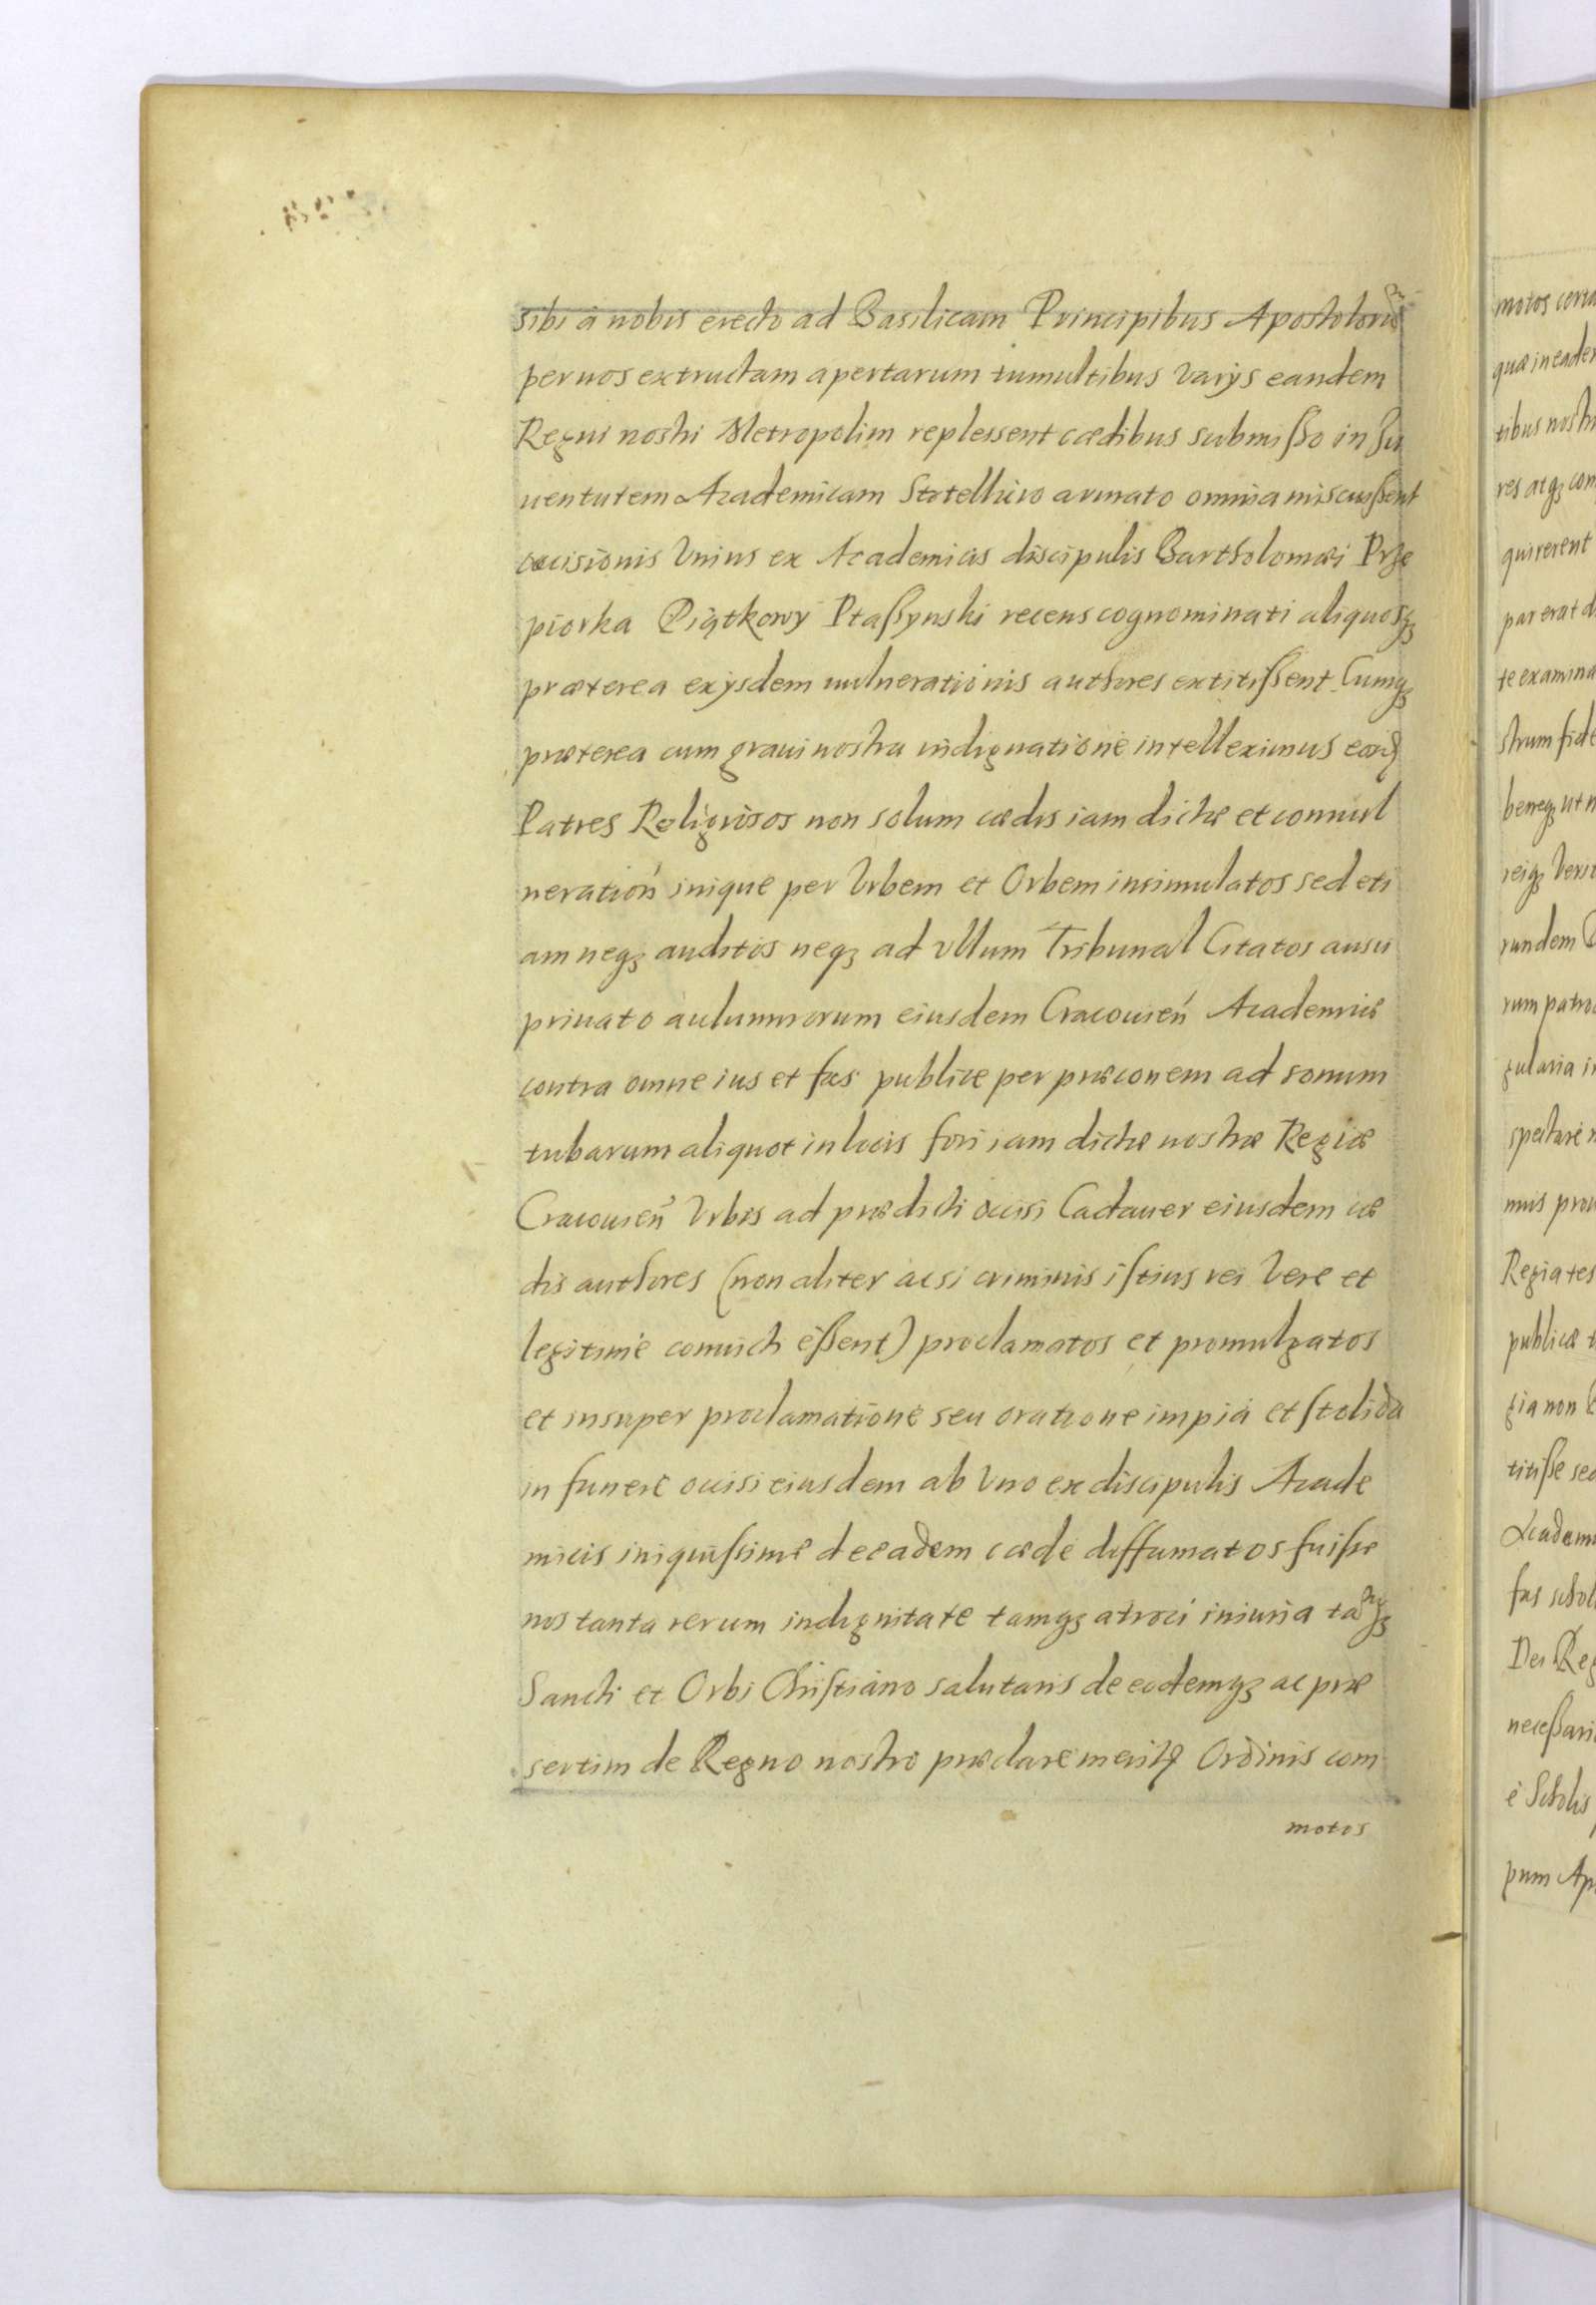 sibi à nobis erecto ad Basilicam Principibus Apostolorũ
per nos extructam apertarum tumultibus varijs eandem
Regni nostri Metropolim replessent cædibus submißo in Iu
uentutem Academicam Satellitio armato omnia miscuißent
occisionis Vnius ex Academicis discipulis Bartholomæi Prze
piorka Piątkowy Ptaßynski recens cognominati aliquosqꝫ
præterea exijsdem uulnerationis authores extitißent. Cumqꝫ
præterea cum graui nostra indignatione intelleximus eosdꝫ
Patres Religiosos non solum cædis iam dictæ et conuul
neration̄ inique per Vrbem et Orbem insimulatos sed eti
am neqꝫ auditos neqꝫ ad vllum Tribunal Citatos ausu
priuato alumnorum eiusdem Cracouień Academiæ
contra omne ius et fas publice per præconem ad sonum
tubarum aliquot in locis fori iam dictæ nostræ Regiæ
Cracouień Vrbis ad prædicti occisi Cadauer eiusdem cæ
dis authores (non aliter acsi criminis istius rei Vere et
legitime conuicti eßent) proclamatos et promulgatos
et insuper proclamatione seu oratione impia et stolida
in funere occisi eiusdem ab Vno ex discipulis Acade
micis iniquissime de eadem cæde diffamatos fuisse
nos tanta rerum indignitate tamqꝫ atroci iniuria tamqꝫ
Sancti et Orbi Christiano salutaris de eodemqꝫ ac præ
sertim de Regno nostro præclare meriti Ordinis com
motos
motos certa
quæ in eadem
tibus nostr
res atqꝫ con
quirerent
par erat d
te examina
strum fide
beneqꝫ ut n
reiqꝫ Verit
rundem
rum patro
gularia i
spectare
mus prou
Regia tes
publicæ t
gia non
titiße sed
Academ
fas schol
Dei Reg
neceßari
è Scholis
pum Ap